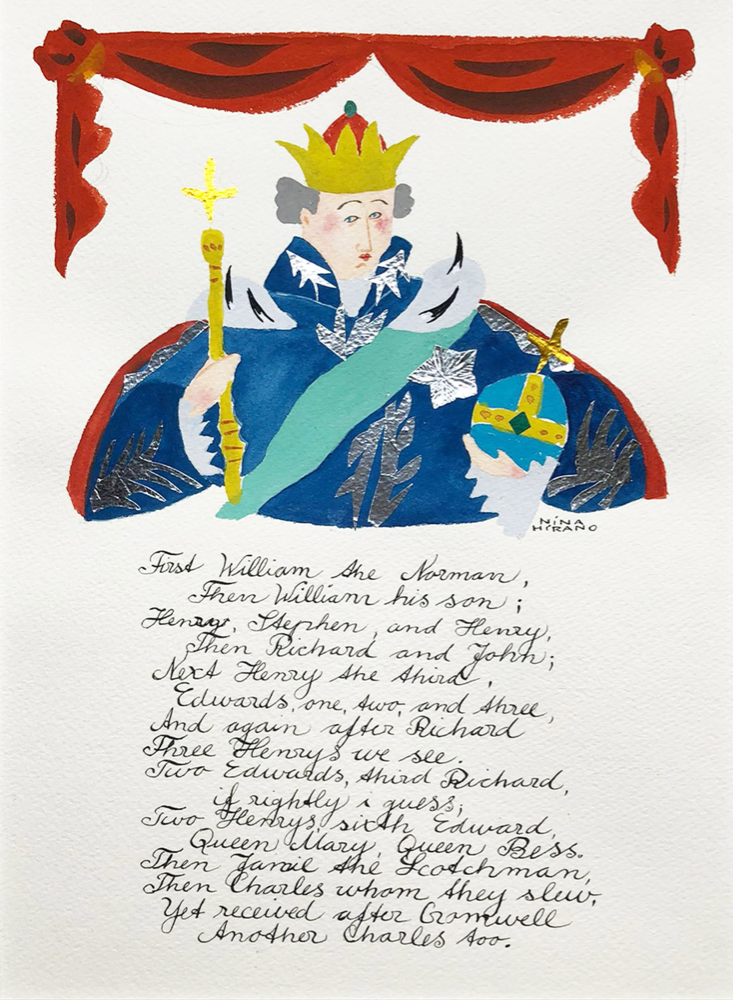 NINA
HIRANO
First William the Norman,
Then William his son;
Henry, Stephen, and Henry,
Then Richard and John;
Next Henry the third,
Edwards, one, two, and three,
And again after Richard
Three Henrys we see.
Two Edwards, third Richard,
if rightly i guess;
Two Henrys, sixth Edward,
Queen Mary, Queen Bess.
Then Jamie the Scotchman,
Then Charles whom they slew,
Yet received after Cromwell
Another Charles too.